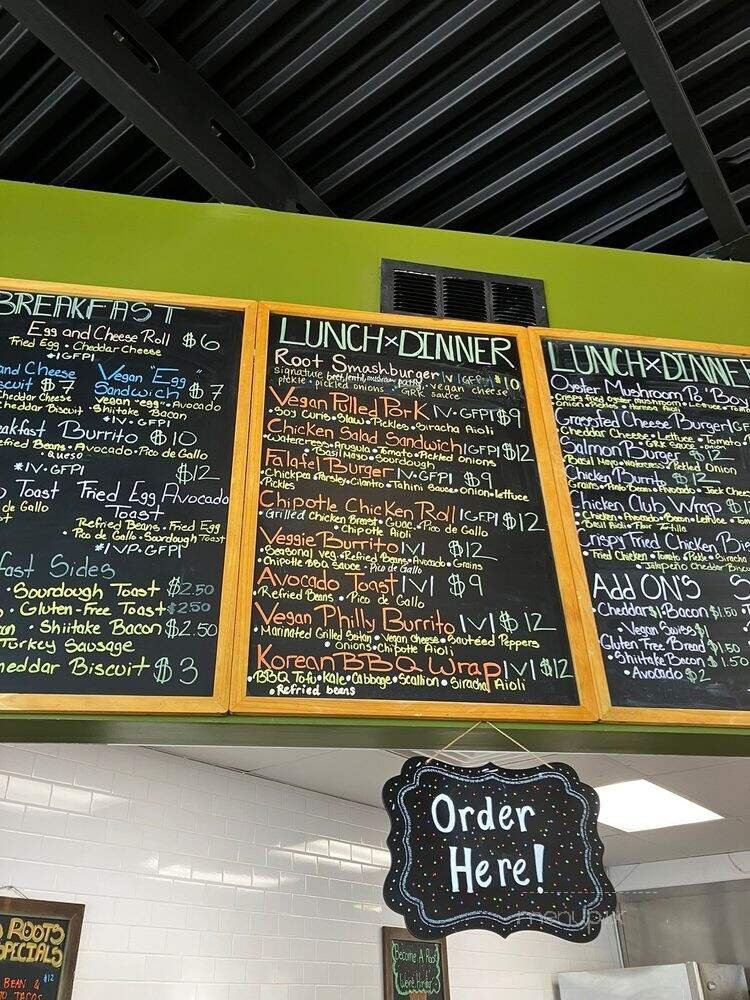 BREAKFAST
Egg and Cheese Roll $6
Fried Egg • Cheddar Cheese
*IGFPI
and Cheese
scuit $7
heddar Cheese
heddar Biscuit
Vegan "Egg"
Sandwich $7
vegan "egg" • Avocado
• Shiitake Bacon
*IV•GFPI
akfast Burrito $10
efried Beans • Avocado • Pico de Gallo
• Queso
*IV•GFPI
Toast
de Gallo
$12
Fried Egg Avocado
Toast
Refried Beans • Fried Egg
• Pico de Gallo • Sourdough Toast
*IVP•GFPI
fast Sides
• Sourdough Toast $2.50
• Gluten-Free Toast $2.50
• Shiitake Bacon $2.50
Turkey Sausage
heddar Biscuit $3
LUNCH x DINNER
Root Smashburger IV IGFPI $10
signature beet, lentil, mushroom patty, vegan cheese
pickle • pickled onions • GRK sauce
Vegan Pulled Pork IV•GFPI $9
• Soy Curls • Slaw • Pickles • Siracha Aioli
Chicken Salad Sandwich IGFPI $12
• Watercress • Arugula • Tomato • Pickled Onions
• Basil Mayo • Sourdough
Falafel Burger IV•GFPI $9
• Chickpea • Parsley • Cilantro • Tahini Sauce • Onion • lettuce
• Pickles
Chipotle Chicken Roll IGFPI $12
• Grilled Chicken Breast • Guac • Pico de Gallo
• Chipotle Aioli
Veggie Burrito IVI $12
• Seasonal Veg • Refried Beans • Avocado • Grains
• Chipotle BBQ Sauce • Pico de Gallo
Avocado Toast IVI $9
• Refried Beans • Pico de Gallo
Vegan Philly Burrito IVI $12
• Marinated Grilled Seitan • Vegan Cheese • Sautéed Peppers
• Onions • Chipotle Aioli
Korean BBQ Wrap IVI $12
• BBQ Tofu • Kale • Cabbage • Scallion • Siracha Aioli
• Refried beans
LUNCH x DINNE
Oyster Mushroom Po'Boy
Crispy fried oyster mushroom • Lettuce • To
Onion • Pickles • Harissa Aioli
Grassfed Cheese Burger IGF
Cheddar Cheese • Lettuce • Tomato
• GRK Sauce
Salmon Burger $12
Basil Mayo • Watercress • Pickled Onion
Chicken Burrito $12
Grains • Pinto Bean • Avocado • Jack Chee
Chicken Club Wrap $1
• Chicken • Avocado • Bacon • Lettuce • To
Basil Aioli • Flour Tortilla
Crispy Fried Chicken Bis
• Fried Chicken • Tomato • Pickle • Siracha
• Jalapeño Cheddar Biscu
Add ON'S
Cheddar $1 • Bacon $1.50
• Vegan Swiss $1
Gluten Free Bread $1.50
• Shiitake Bacon $1.50
• Avocado $2
Order
Here!
menupix
ROOTS
SPECIALS
BEAN & $12
TACOS
Become A Root